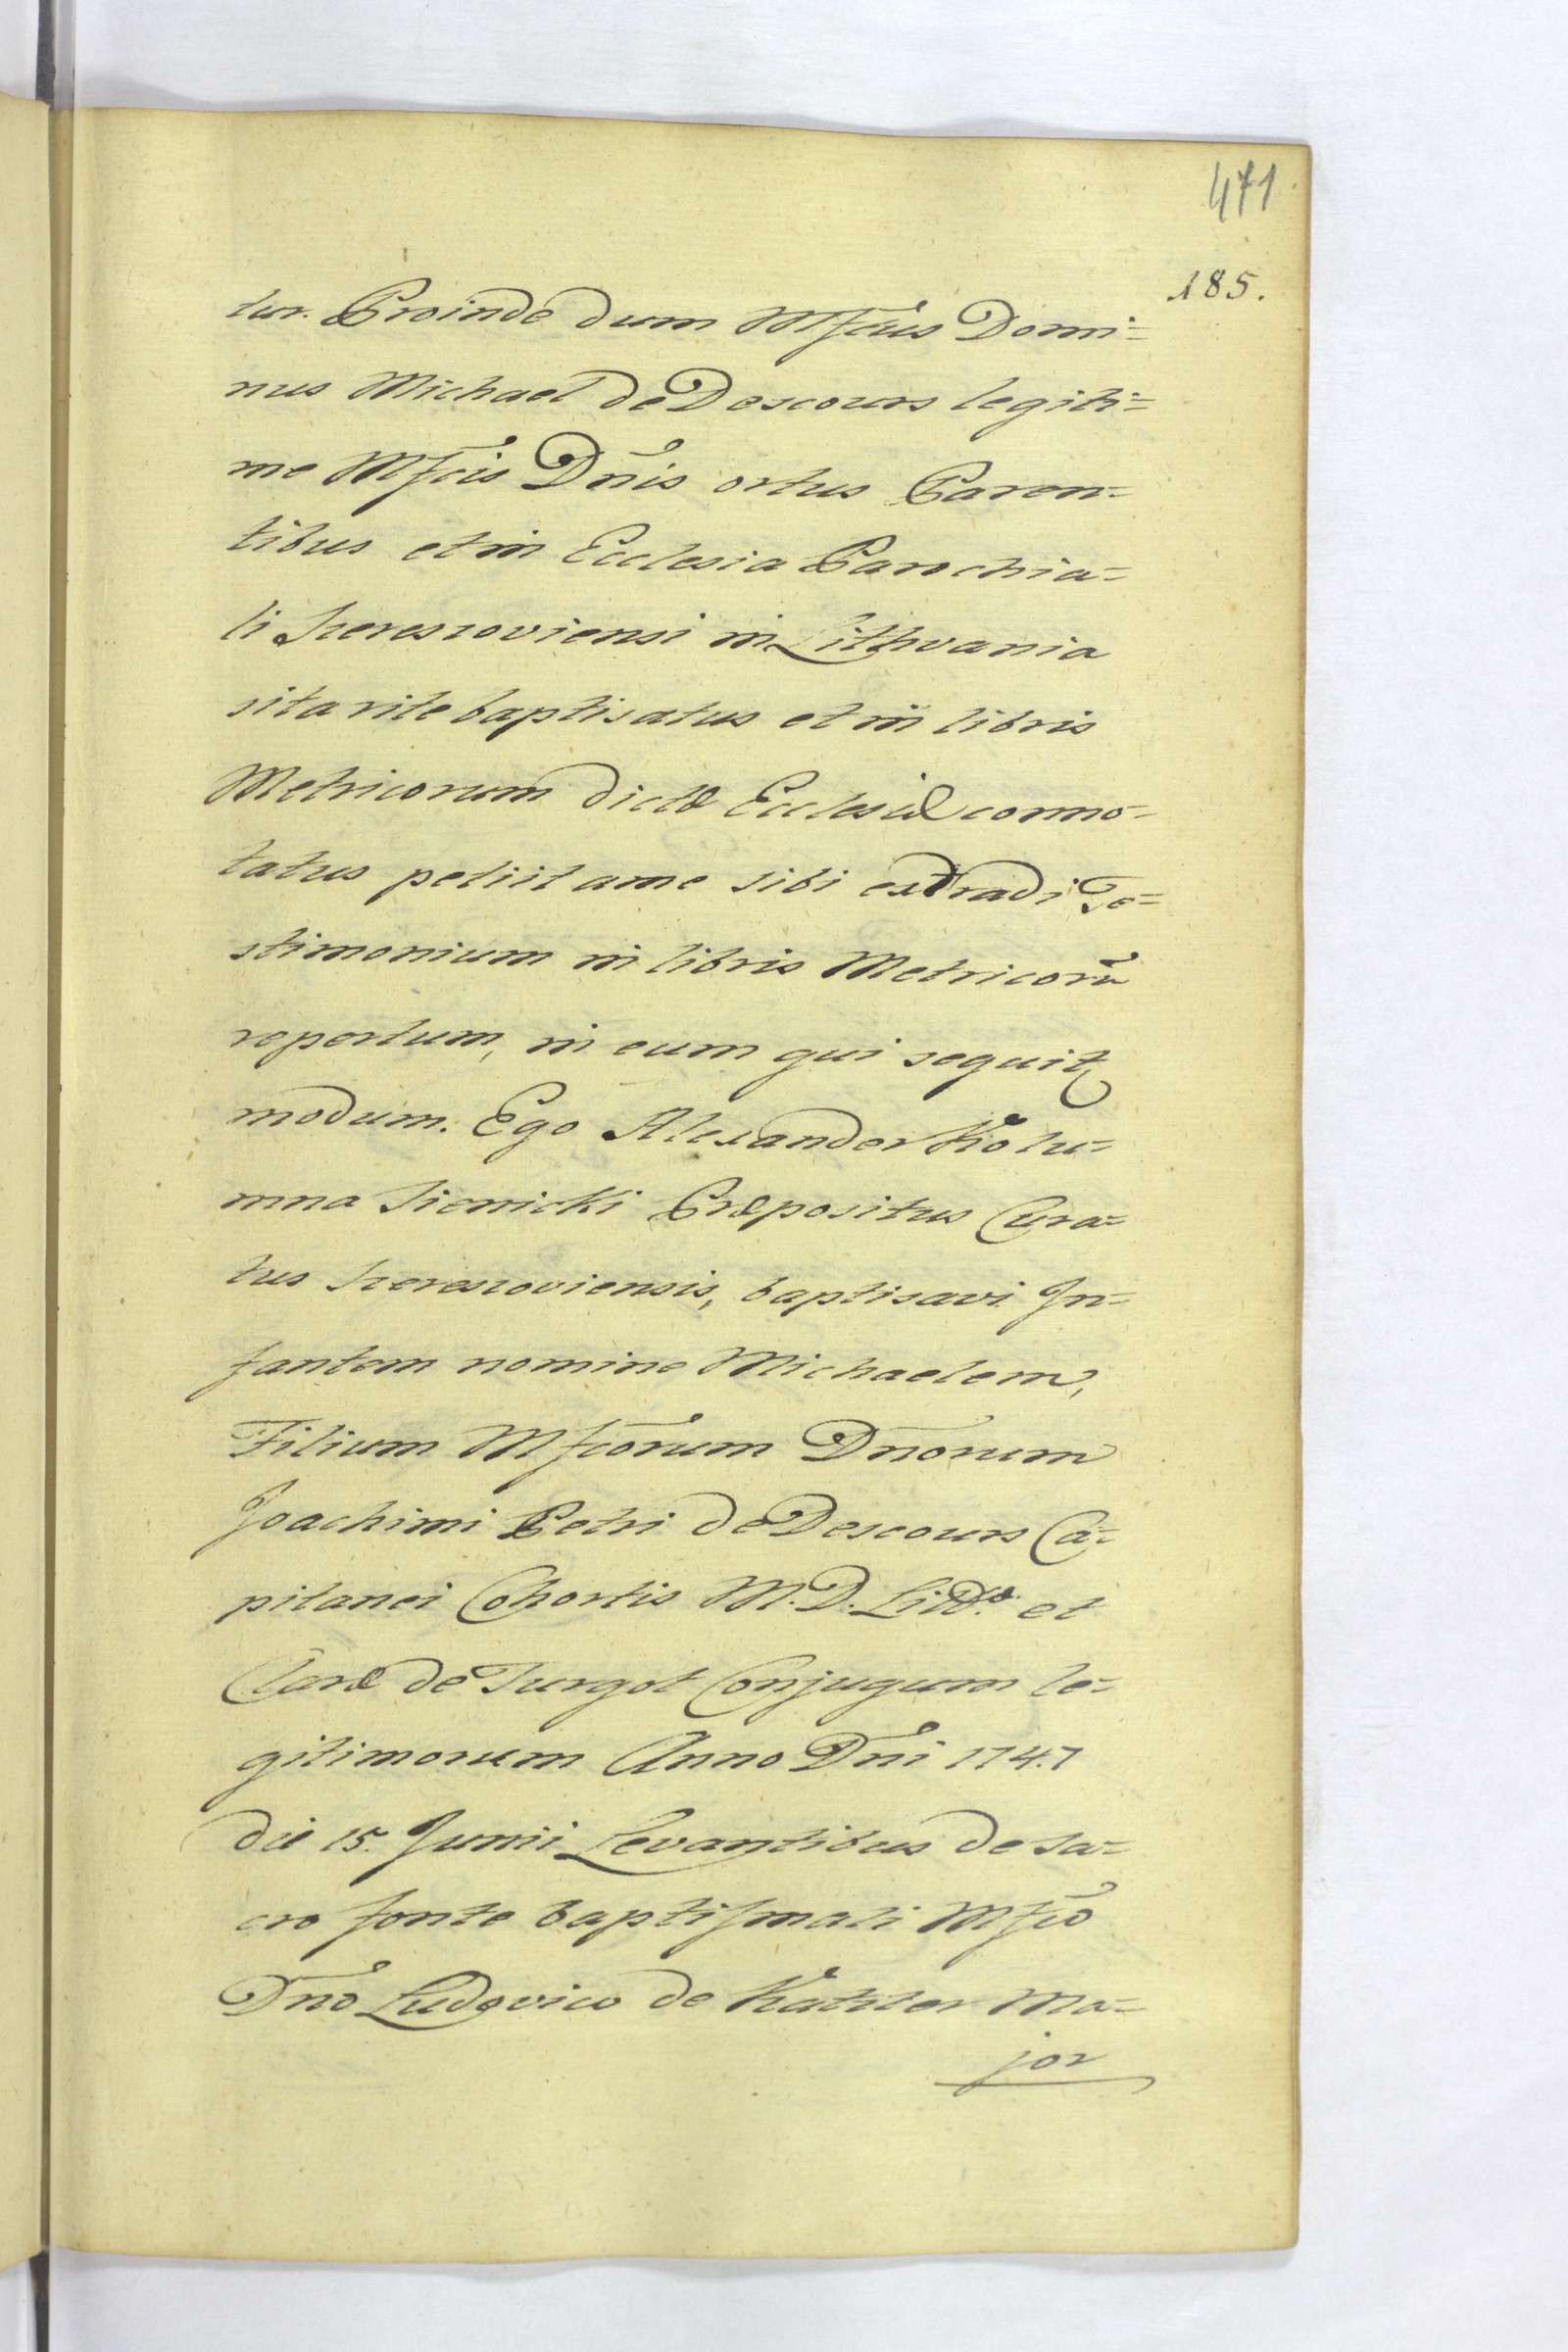 471
185.
tur. Proinde dum Mfcus Domi=
nus Michael de Descours legiti=
me Mfcis Dnis ortus Paren=
tibus et in Ecclesia Parochia=
li Szereszoviensi in Lithvania
sita rite baptisatus et in libris
Metricorum dictæ Ecclesiæ conno-
tatus petiit a me sibi extradi Te=
stimonium in libris Metricorũ
repertum, in eum qui sequit
modum. Ego Alexander Kolu=
mna Sienicki Præpositus Cura=
tus Szereszoviensis, baptisavi In=
fantem nomine Michaelem,
Filium Mfcorum Dnorum
Joachimi Petri de Descours Ca=
pitanei Cohortis M. D. Litt. et
Claræ de Turgot Conjugum le=
gitimorum Anno Dni 1747
die 15. Junii Levantibus de sa=
cro fonte baptismali Mfco
Dno Ludovico de Ma=
jor